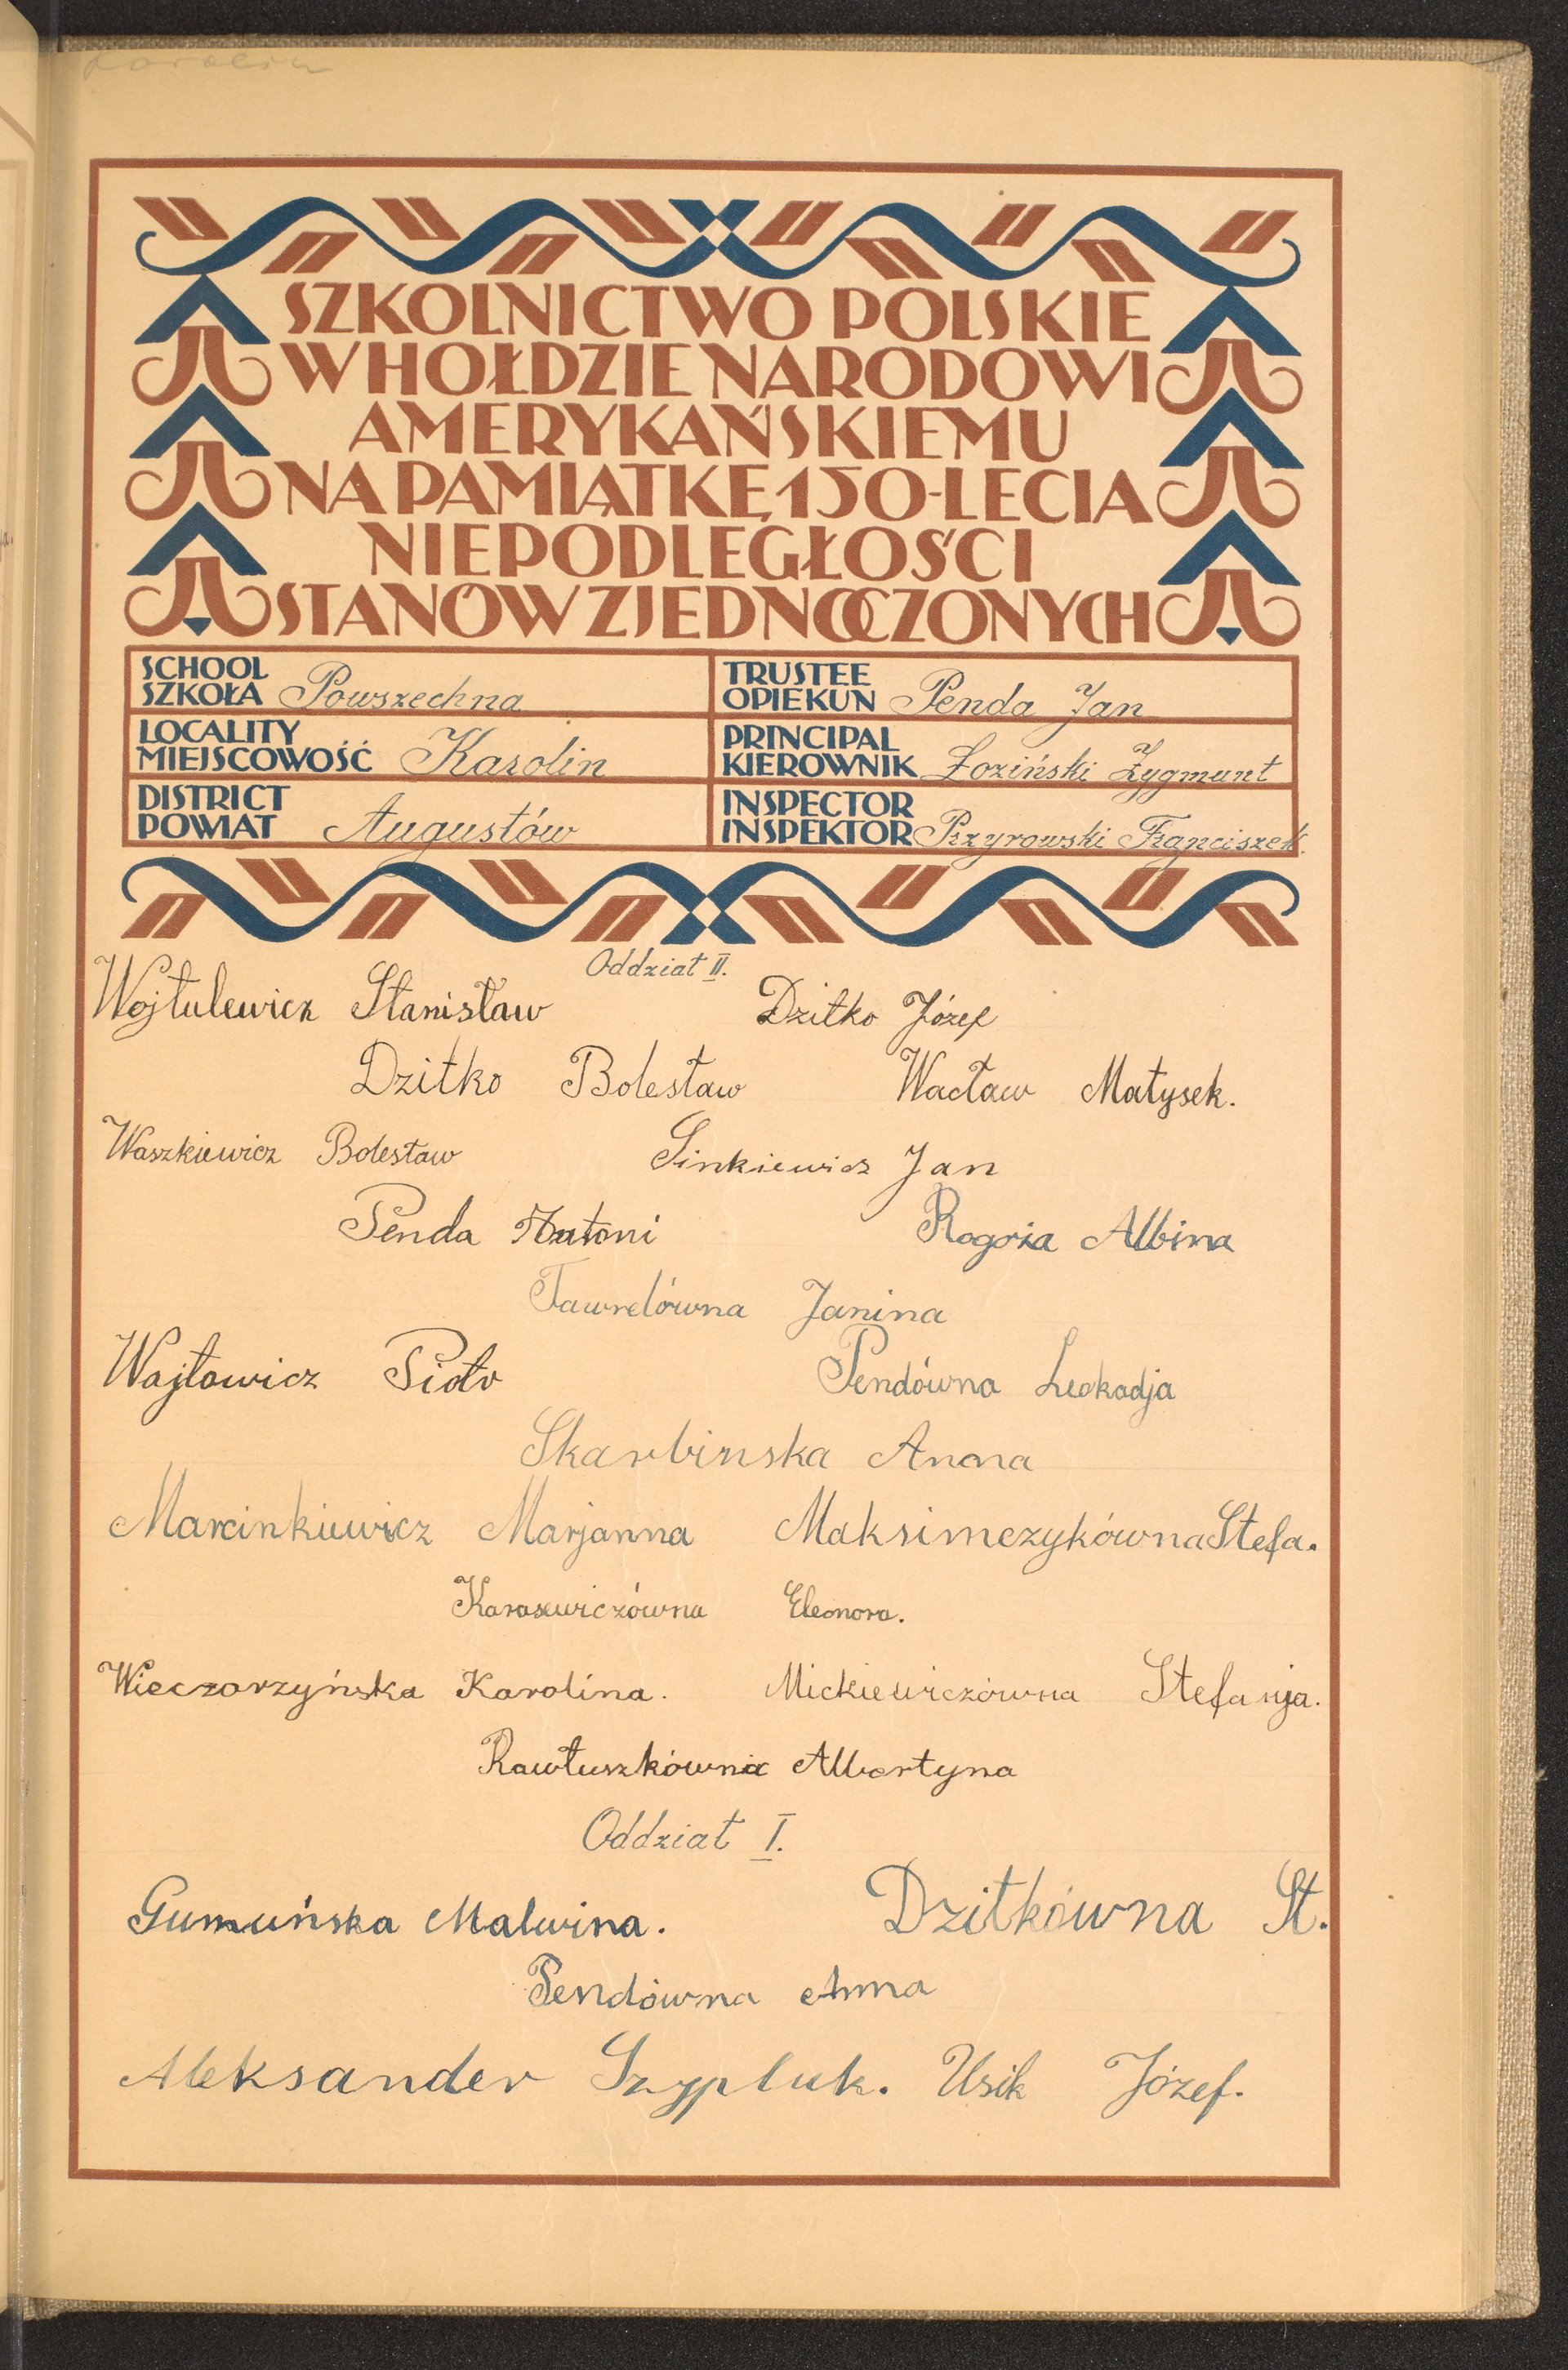 Karolin
SZKOLNICTWO POLSKIE
W HOŁDZIE NARODOWI
AMERYKAŃSKIEMU
NA PAMIĄTKĘ 150-LECIA
NIEPODLEGŁOŚCI
STANÓW ZJEDNOCZONYCH
SCHOOL
SZKOŁA Powszechna
TRUSTEE
OPIEKUN Penda Jan
LOCALITY
MIEJSCOWOŚĆ Karolin
PRINCIPAL
KIEROWNIK Łoziński Zygmunt
DISTRICT
POWIAT Augustów
INSPECTOR
INSPEKTOR Przyrowski Franciszek.
Oddział II.
Wojtulewicz Stanisław Dzitko Józef
Dzitko Bolesław Wacław Matysek.
Waszkiewicz Bolesław Sinkiewicz Jan
Penda Antoni Rogoża Albina
Tawrelówna Janina
Wajtowicz Piotr Pendówna Leokadja
Skarbinska Anna
Marcinkiewicz Marjanna Maksimczykówna Stefa.
Karasewiczówna Eleonora.
Wieczorzyńska Karolina. Mickiewiczówna Stefanja.
Rawłuszkówna Albertyna
Oddział I.
Gumuńska Malwina. Dzitkówna St.
Pendówna Anna
Aleksander Szypluk. Usik Józef.